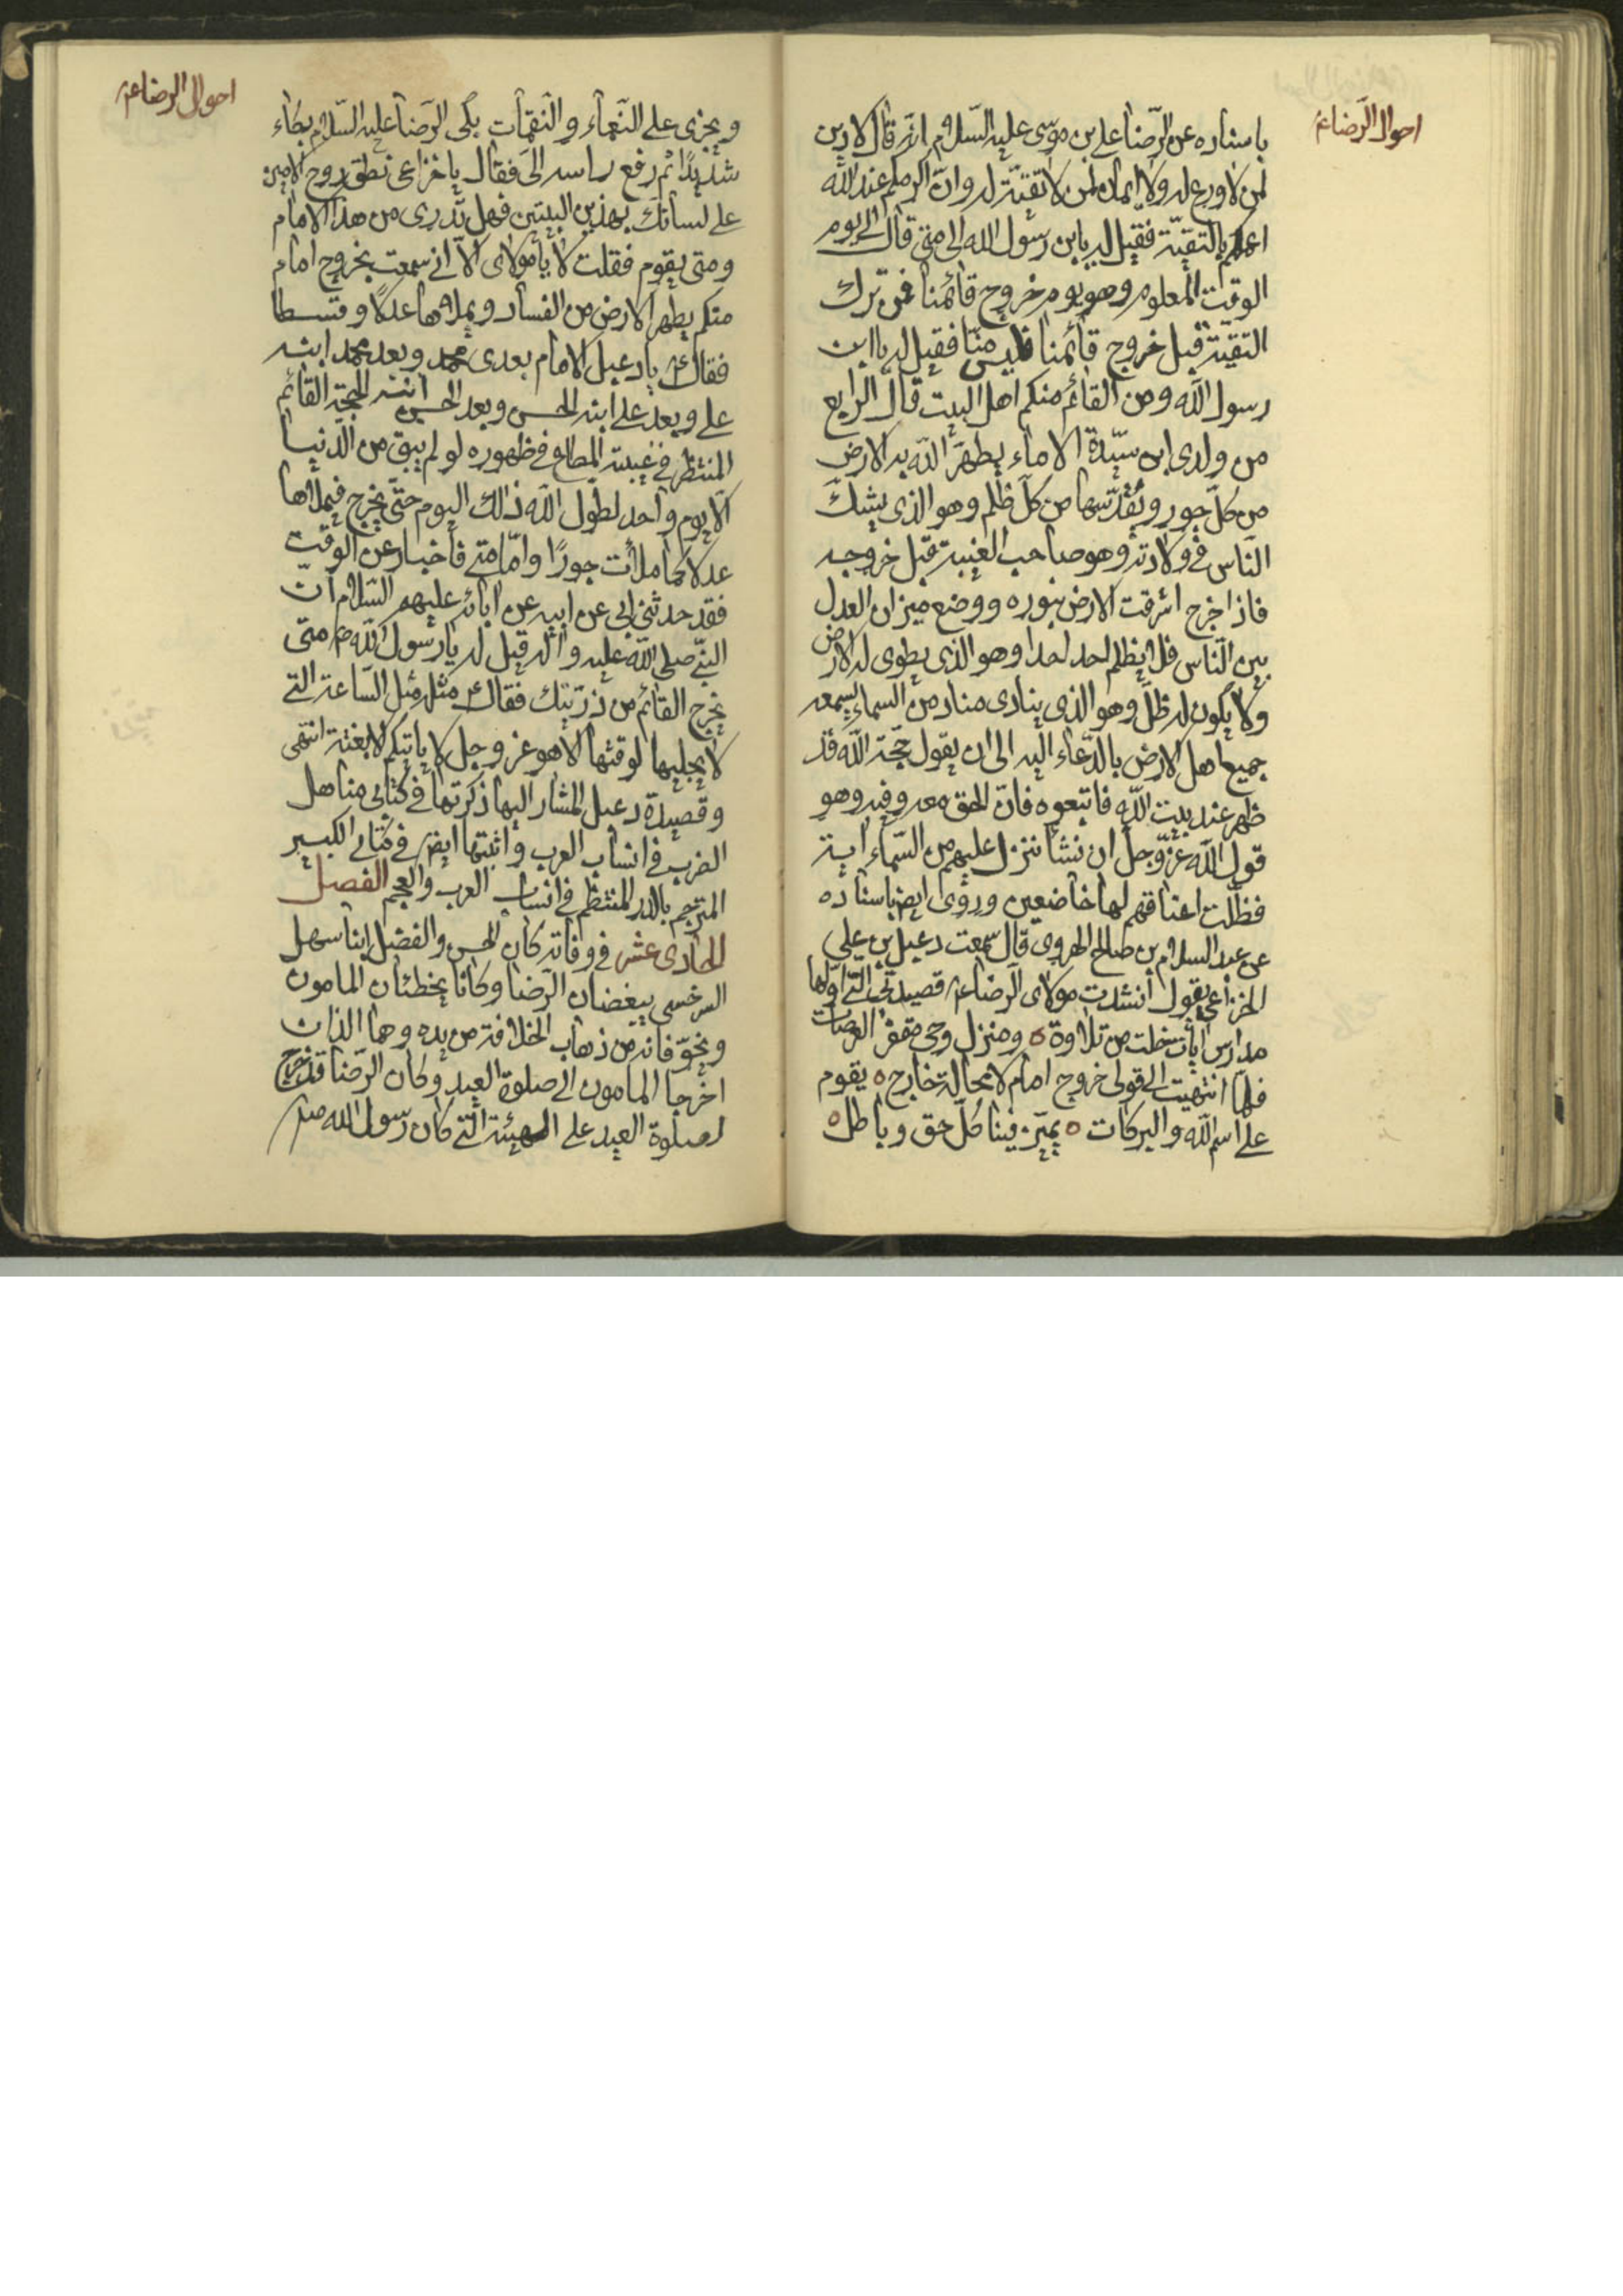 احوال الرضا ع
باسناده عن الرّضا علي بن موسى عليه السّلام انّه قال لا دين
لمن لا ورع له ولا ايمان لمن لا تقيّة له وانّ اكرمكم عند الله
اعملكم بالتقيّة فقيل له يابن رسول الله الى متى قال الى يوم
الوقت المعلوم وهو يوم خروج قائمنا فمن ترك
التقيّة قبل خروج قائمنا فليس منّا فقيل له يا ابن
رسول الله ومن القائم منكم اهل البيت قال الرابع
من ولدى ابن سيّدة الاماء يطهّر الله به الارض
من كلّ جور ويقدّسها من كلّ ظلم وهو الذى يشكّ
النّاس فى ولادته وهو صاحب الغيبة قبل خروجه
فاذا خرج اشرقت الارض بنوره ووضع ميزان العدل
بين النّاس فلا يظلم احد احدا وهو الذى يطوى له الارض
ولا يكون له ظلّ وهو الذى ينادى مناد من السماء يسمعه
جميع اهل الارض بالدّعاء اليه الى ان يقول حجّة الله قد
ظهر عند بيت الله فاتبعوه فانّ الحق معه وفيه وهو
قول الله عزّ وجلّ ان نشأ ننزل عليهم من السّماء اية
فظلّت اعناقهم لها خاضعين وروى ايضا باسناده
عن عبد السلام بن صالح الهروى قال سمعت دعبل بن على
الخزاعى يقول انشدت مولاى الرضا ع قصيدتى التى اوّلها
مدارس ايات خلت من تلاوة ه ومنزل وحى مقفر العرصات
فلمّا انتهيت الى قولى خروج امام لا محالة خارج ه يقوم
على اسم الله والبركات ه يميّز فينا كلّ حق وباطل ه
احوال الرضا ع
ويجزى على النّعماء والنقمات بكى الرّضا عليه السّلام بكاء
شديدًا ثم رفع راسه الىّ فقال يا خزاعى نطق روح الامين
على لسانك بهذين البيتين فهل تدرى من هذا الامام
ومتى يقوم فقلت لا يا مولاى الّا انى سمعت بخروج امام
منكم يطهر الارض من الفساد ويملاءها عدلًا وقسطا
فقال ع يا دعبل الامام بعدى محمد وبعد محمد ابنه
على وبعد على ابنه الحسن وبعد الحسن ابنه الحجّة القائم
المنتظر فى غيبته المطاع فى ظهوره لو لم يبق من الدنيا
الّا يوم واحد لطوّل الله ذلك اليوم حتّى يخرج فيملاءها
عدلا كما ملأت جورًا وامّا متى فاخبار عن الوقت
فقد حدثنى ابى عن ابيه عن ابائه عليهم السّلام انّ
النبّى صلى الله عليه واله قيل له يا رسول الله ص متى
يخرج القائم من ذرّيتك فقال مثله مثل السّاعة التى
لا يجليها لوقتها الا هو عز وجل لا ياتيكم الا بغتة انتهى
وقصيدة دعبل المشار اليها ذكرتها فى كتابى مناهل
الضرب فى انساب العرب واثبتها ايضا فى كتابى الكبير
المترجم بالدر المنتظم فى انساب العرب والعجم الفصل
الحادى عشر فى وفاته كان الحسن والفضل ابنا سهل
السرخسى يبغضان الرّضا وكانا يخطئان المامون
ويخوّفانه من ذهاب الخلافة من يده وهما اللذان
اخرجا المامون الى صلوة العيد وكان الرّضا قد خرج
لصلوة العيد على الهيئة التى كان رسول الله ص